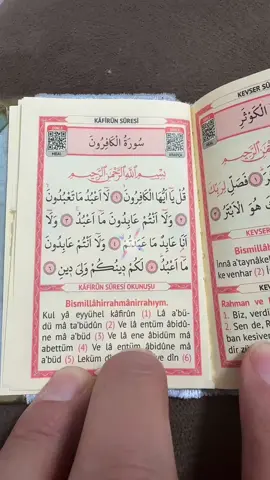 KÂFİRÛN SÛRESİ
سُورَةُ الْكَافِرُونَ
بِسْمِ اللّٰهِ الرَّحْمٰنِ الرَّحِيمِ
قُلْ يَٓا اَيُّهَا الْكَافِرُونَ ﴿١﴾ لَٓا اَعْبُدُ مَا تَعْبُدُونَ
﴿٢﴾ وَلَٓا اَنْتُمْ عَابِدُونَ مَٓا اَعْبُدُ ﴿٣﴾ وَلَٓا
اَنَا۬ عَابِدٌ مَا عَبَدْتُمْ ﴿٤﴾ وَلَٓا اَنْتُمْ عَابِدُونَ
مَٓا اَعْبُدُ ﴿٥﴾ لَكُمْ دِينُكُمْ وَلِيَ دِينِ ﴿٦﴾
KÂFİRÛN SÛRESİ OKUNUŞU
Bismillâhirrahmânirrahıym.
Kul yâ eyyühel kâfirûn (1) Lâ a'bü-
dü mâ ta'büdûn (2) Ve lâ entüm âbidû-
ne mâ a'büd (3) Ve lâ ene âbidüm mâ
abettüm (4) Ve lâ entüm âbidûne mâ
a'büd (5) Leküm dî ve dîn (6)
KEVSER SÛ
الْكَوْثَرِ
بِسْمِ اللّٰهِ الرَّحْمٰنِ
فَصَلِّ لِرَبِّكَ
هُوَ الْاَبْتَرُ
KEVSER
Bismillâhi
İnnâ a'taynâke
venhar (2)
Rahman ve
1. Biz, verdi
2. Sen de, R
ban kes